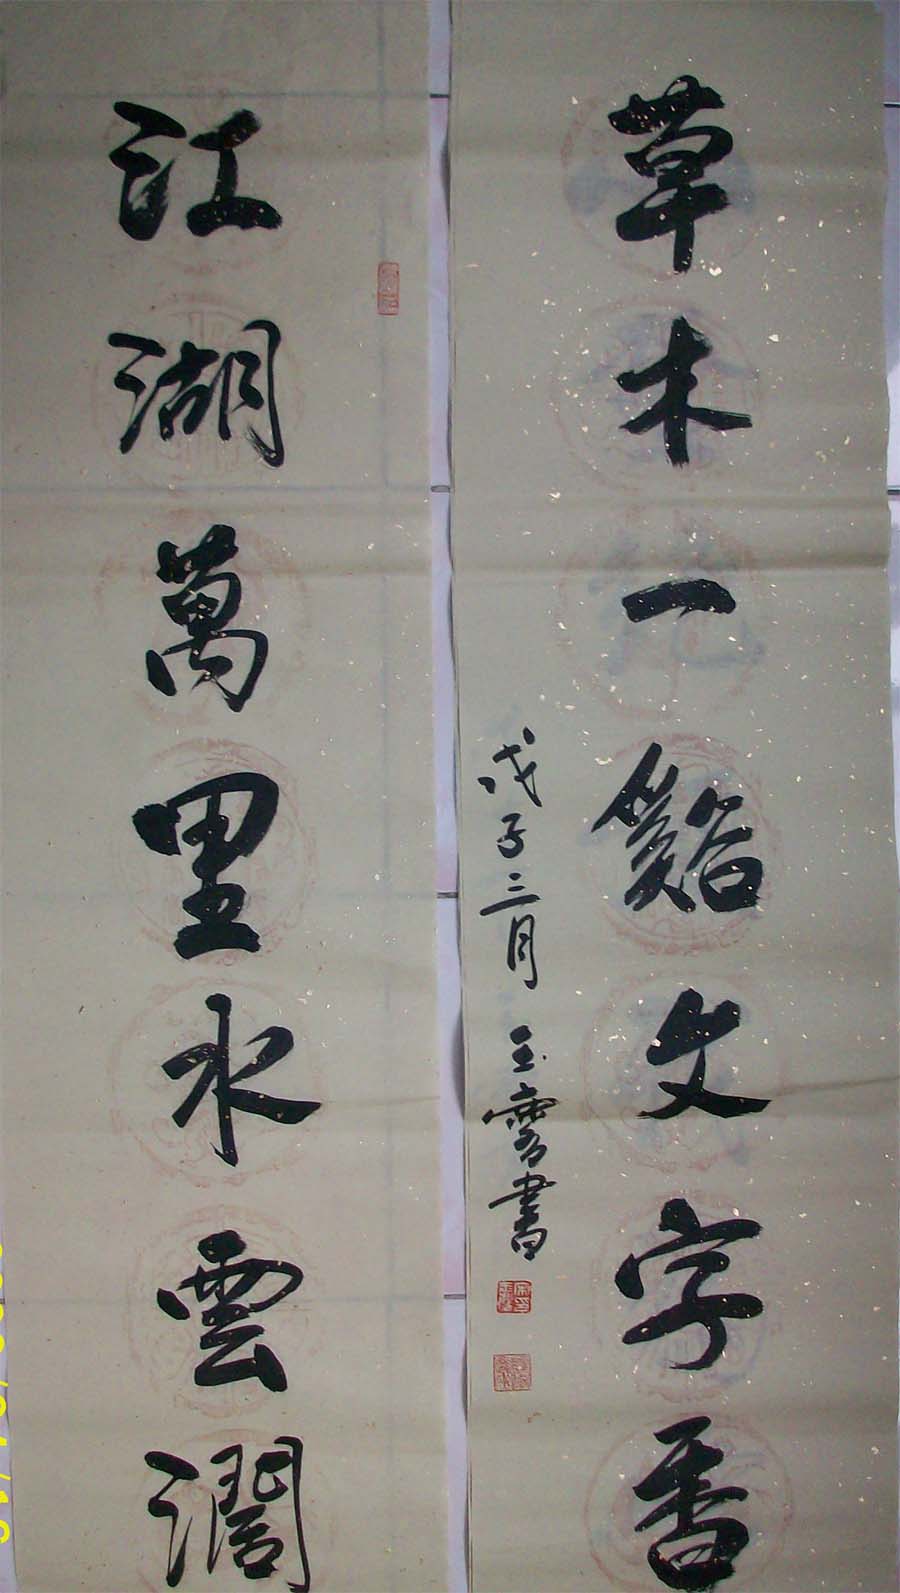 草木一谿文字香
戊子三月
書
江湖萬里水雲濶